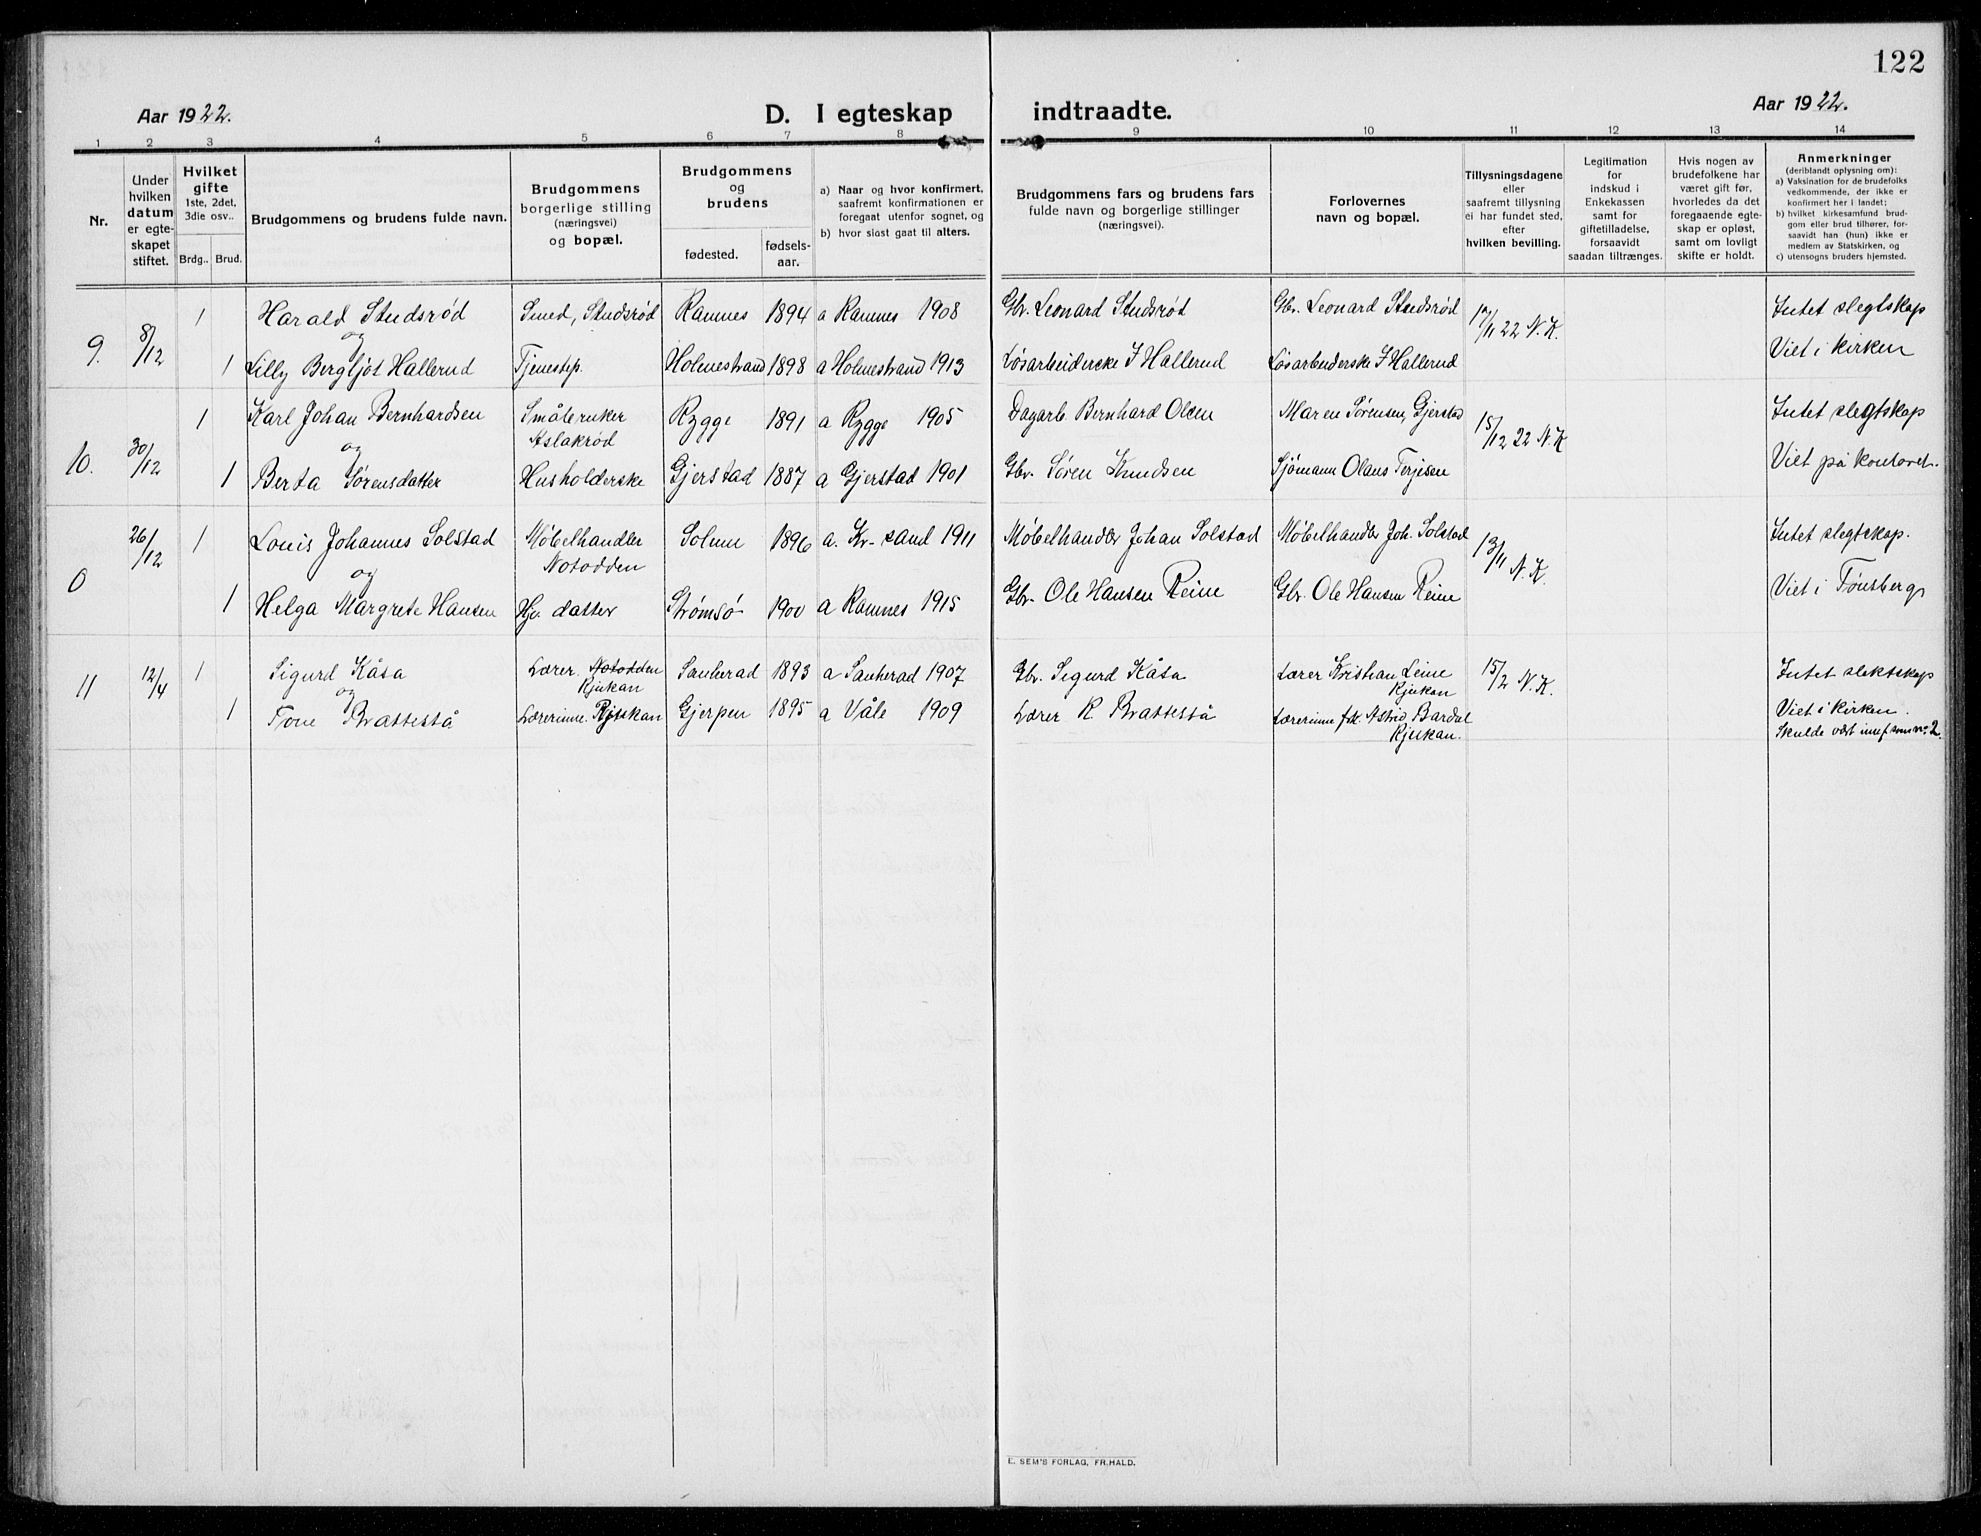 122
Aar 1922.
D. I egteskap indtraadte.
Aar 1922.
1 2 3 4 5 6 7 8 9 10 11 12 13 14
Nr.
Under hvilken datum er egteskapet stiftet.
Hvilket gifte 1ste, 2det, 3die osv..
Brdg.. Brud.
Brudgommens og brudens fulde navn.
Brudgommens borgerlige stilling (næringsvei) og bopæl.
Brudgommens og brudens
fødested.
fødselsaar.
a) Naar og hvor konfirmert, saafremt konfirmationen er foregaat utenfor sognet, og
b) hvor sidst gaat til alters.
Brudgommens fars og brudens fars fulde navn og borgerlige stillinger (næringsvei).
Forlovernes navn og bopæl.
Tillysningsdagene eller saafremt tillysning ei har fundet sted, efter hvilken bevilling.
Legitimation for indskud i Enkekassen samt for giftetilladelse, forsaavidt saadan tiltrænges.
Hvis nogen av brudefolkene har været gift før, hvorledes da det foregaaende egteskap er opløst, samt om lovligt skifte er holdt.
Anmerkninger (deriblandt oplysning om):
a) Vaksination for de brudefolks vedkommende, der ikke er konfirmert her i landet;
b) hvilket kirkesamfund brudgom eller brud tilhører, forsaavidt han (hun) ikke er medlem av Statskirken, og
c) utensogns bruders hjemsted.
9. 8/12 1 Harald Studsrød Smed, Studsrød Ramnes 1894 a Ramnes 1908 Gbr. Leonard Studsrød Gbr. Leonard Studsrød 17/11 22 N.K. Intet slegtskap
og
1 Lilly Bergljot Hallerud Tjenestep. Holmestrand 1898 a Holmestrand 1913 Løsarbeiderske J Hallerud Løsarbeiderske J Hallerud Viet i kirken
10. 30/12 1 Karl Johan Bernhardsen Småbruker Aslakrød Rygge 1891 a Rygge 1905 Dagarb. Bernhard Olsen Maren Sørensen, Gjerstad 15/12 22 N.K Intet slegtskap
og
1 Berta Sørensdatter Husholderske Gjerstad 1887 a Gjerstad 1901 Gbr. Søren Knudsen Sjømann Olaus Terjesen Viet på kontoret.
0 26/12 1 Louis Johannes Solstad Møbelhandler Notodden Solum 1896 a. Kr-sand 1911 Møbelhandler Johan Solstad Møbelhandler Joh. Solstad 13/11 N.K. Intet slegtskap.
og
1 Helga Margrete Hansen Hjv. datter Strømsø 1900 a Ramnes 1915 Gbr. Ole Hansen Reine Gbr. Ole Hansen Reine Viet i Tønsberg
11 12/4 1 Sigurd Kåsa Lærer. Notodden Rjukan Sauherad 1893 a Sauherad 1907 Gbr. Sigurd Kåsa Lærer Kristian Leine Rjukan 15/2 N.K. Intet slektskap
og
1 Tone Brattestå Lærerinne. Rjukan Gjerpen 1895 a Våle 1909 Lærer K Brattestå Lærerinne frk. Astrid Bardal Rjukan. Viet i kirken.
Skulde vært innf som nr. 2.
E. SEM'S FORLAG, FR.HALD.